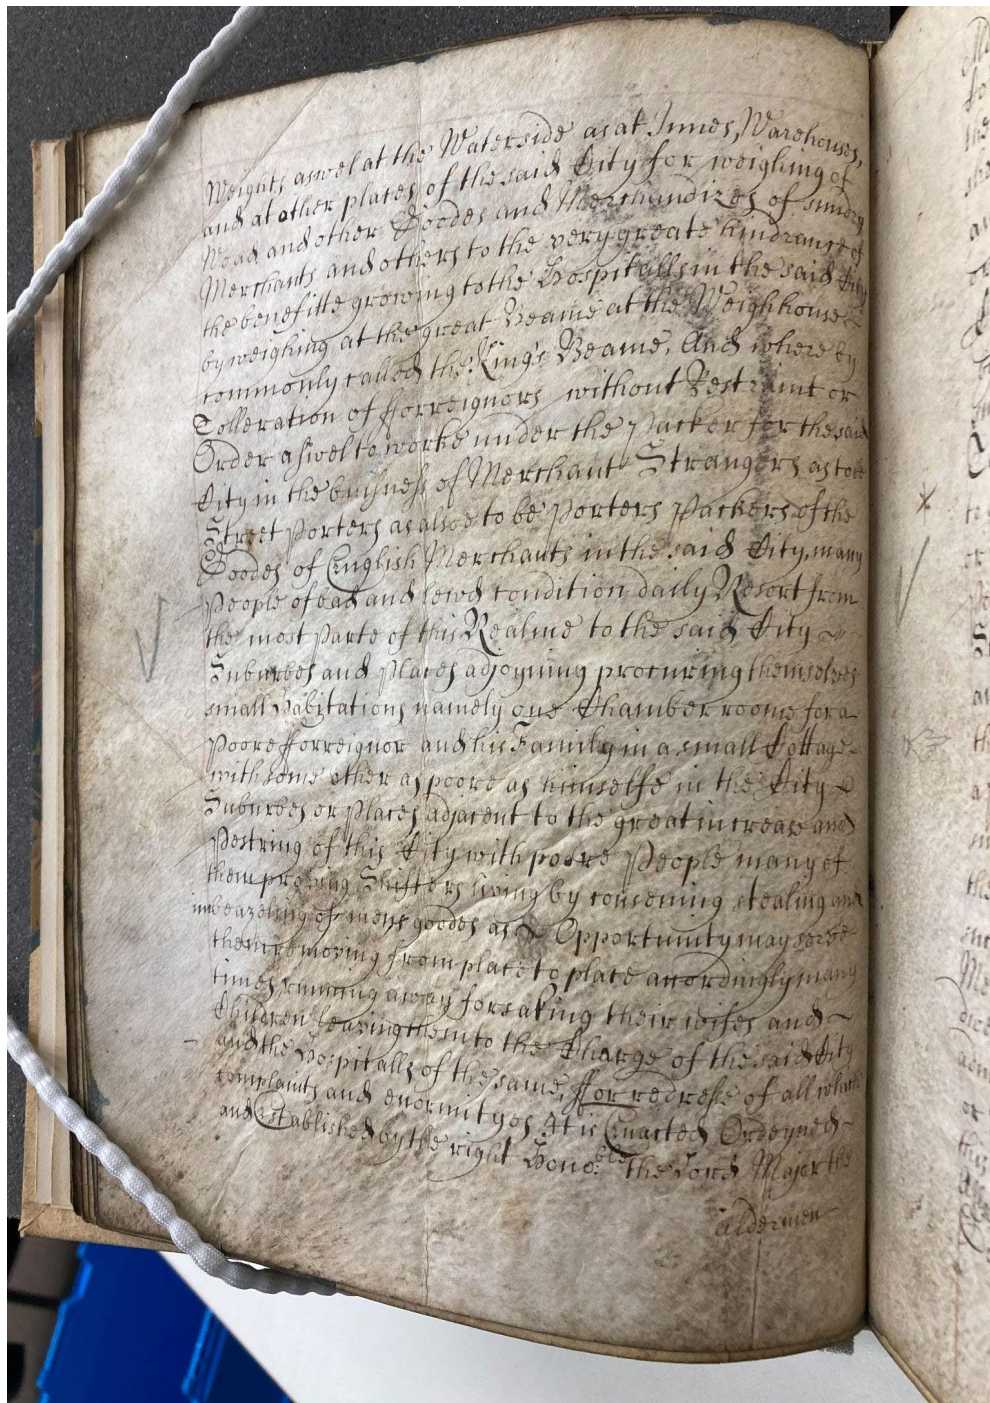 Weights aswel at the Waterside as at Innes, Warehouses,
and at other places of the said City for weighing of
Woad and other Goodes and Merchandizes of sundry
Merchants and others to the very greate hindrance of
the benefitte growing to the Hospitalls in the said City
by weighing at the great Beame at the Weighhouse
commonly called the King's Beame, And where by
Tolleration of fforreignors without Restraint or
Order aswel to worke under the Packer for the said
City in the buisness of Merchant Strangers as to be
Street Porters as alsoe to be Porters Packers of the
Goodes of English Merchants in the said City, many
People of bad and lewd condition daily Resort from
the most Parte of this Realme to the said City
Suburbes and Places adjoyning procuring themselves
small Habitations namely one Chamber roome for a
Poore fforreignor and his Family in a small Cottage
with some other as poore as himselfe in the City
Suburbes or Places adjacent to the great increase and
Pestring of this City with poore People many of
them proving Shifters living by cousening stealing and
imbeazeling of mens goodes as Opportunity may serve
them removing from place to place accordingly many
times running away forsaking their wifes and
Children leaving them to the Charge of the said City
and the Hospitalls of the same, ffor redresse of all which
complaints and enormityes It is Enacted Ordeyned
and Established by the right Hono:ble the Lord Major the
Aldermen